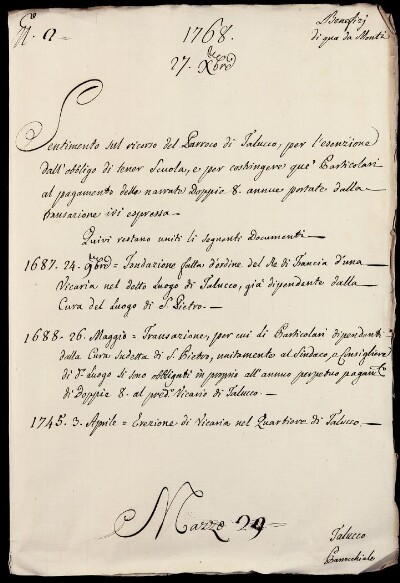 N.º 2 =
1768.
Benefizj
di quà da Monti
27. Xbre
Sentimento sul ricorso del Parroco di Talucco, per l'esenzione
dall'obbligo di tener Scuola, e per costringere que' Particolari
al pagamento delle narrate Doppie 8. annue portate dalla
transazione ivi espressa –
Quivi restano uniti li seguenti Documenti –
1687. 24. 9bre = Fondazione fatta d'ordine del Re di Francia d'una
Vicaria nel detto Luogo di Talucco, già dipendente dalla
Cura del Luogo di S. Pietro. –
1688. 26. Maggio = Transazione, per cui li Particolari dipendenti
dalla Cura sudetta di S. Pietro, unitamente al Sindaco, e Consigliere
di d.º Luogo si sono obbligati in proprio all'annuo perpetuo pagam.to
di Doppie 8. al pred.º Vicario di Talucco. –
1745. 3. Aprile = Erezione di Vicaria nel Quartiere di Talucco. –
Mazzo 29 =
Talucco
Parrocchiale